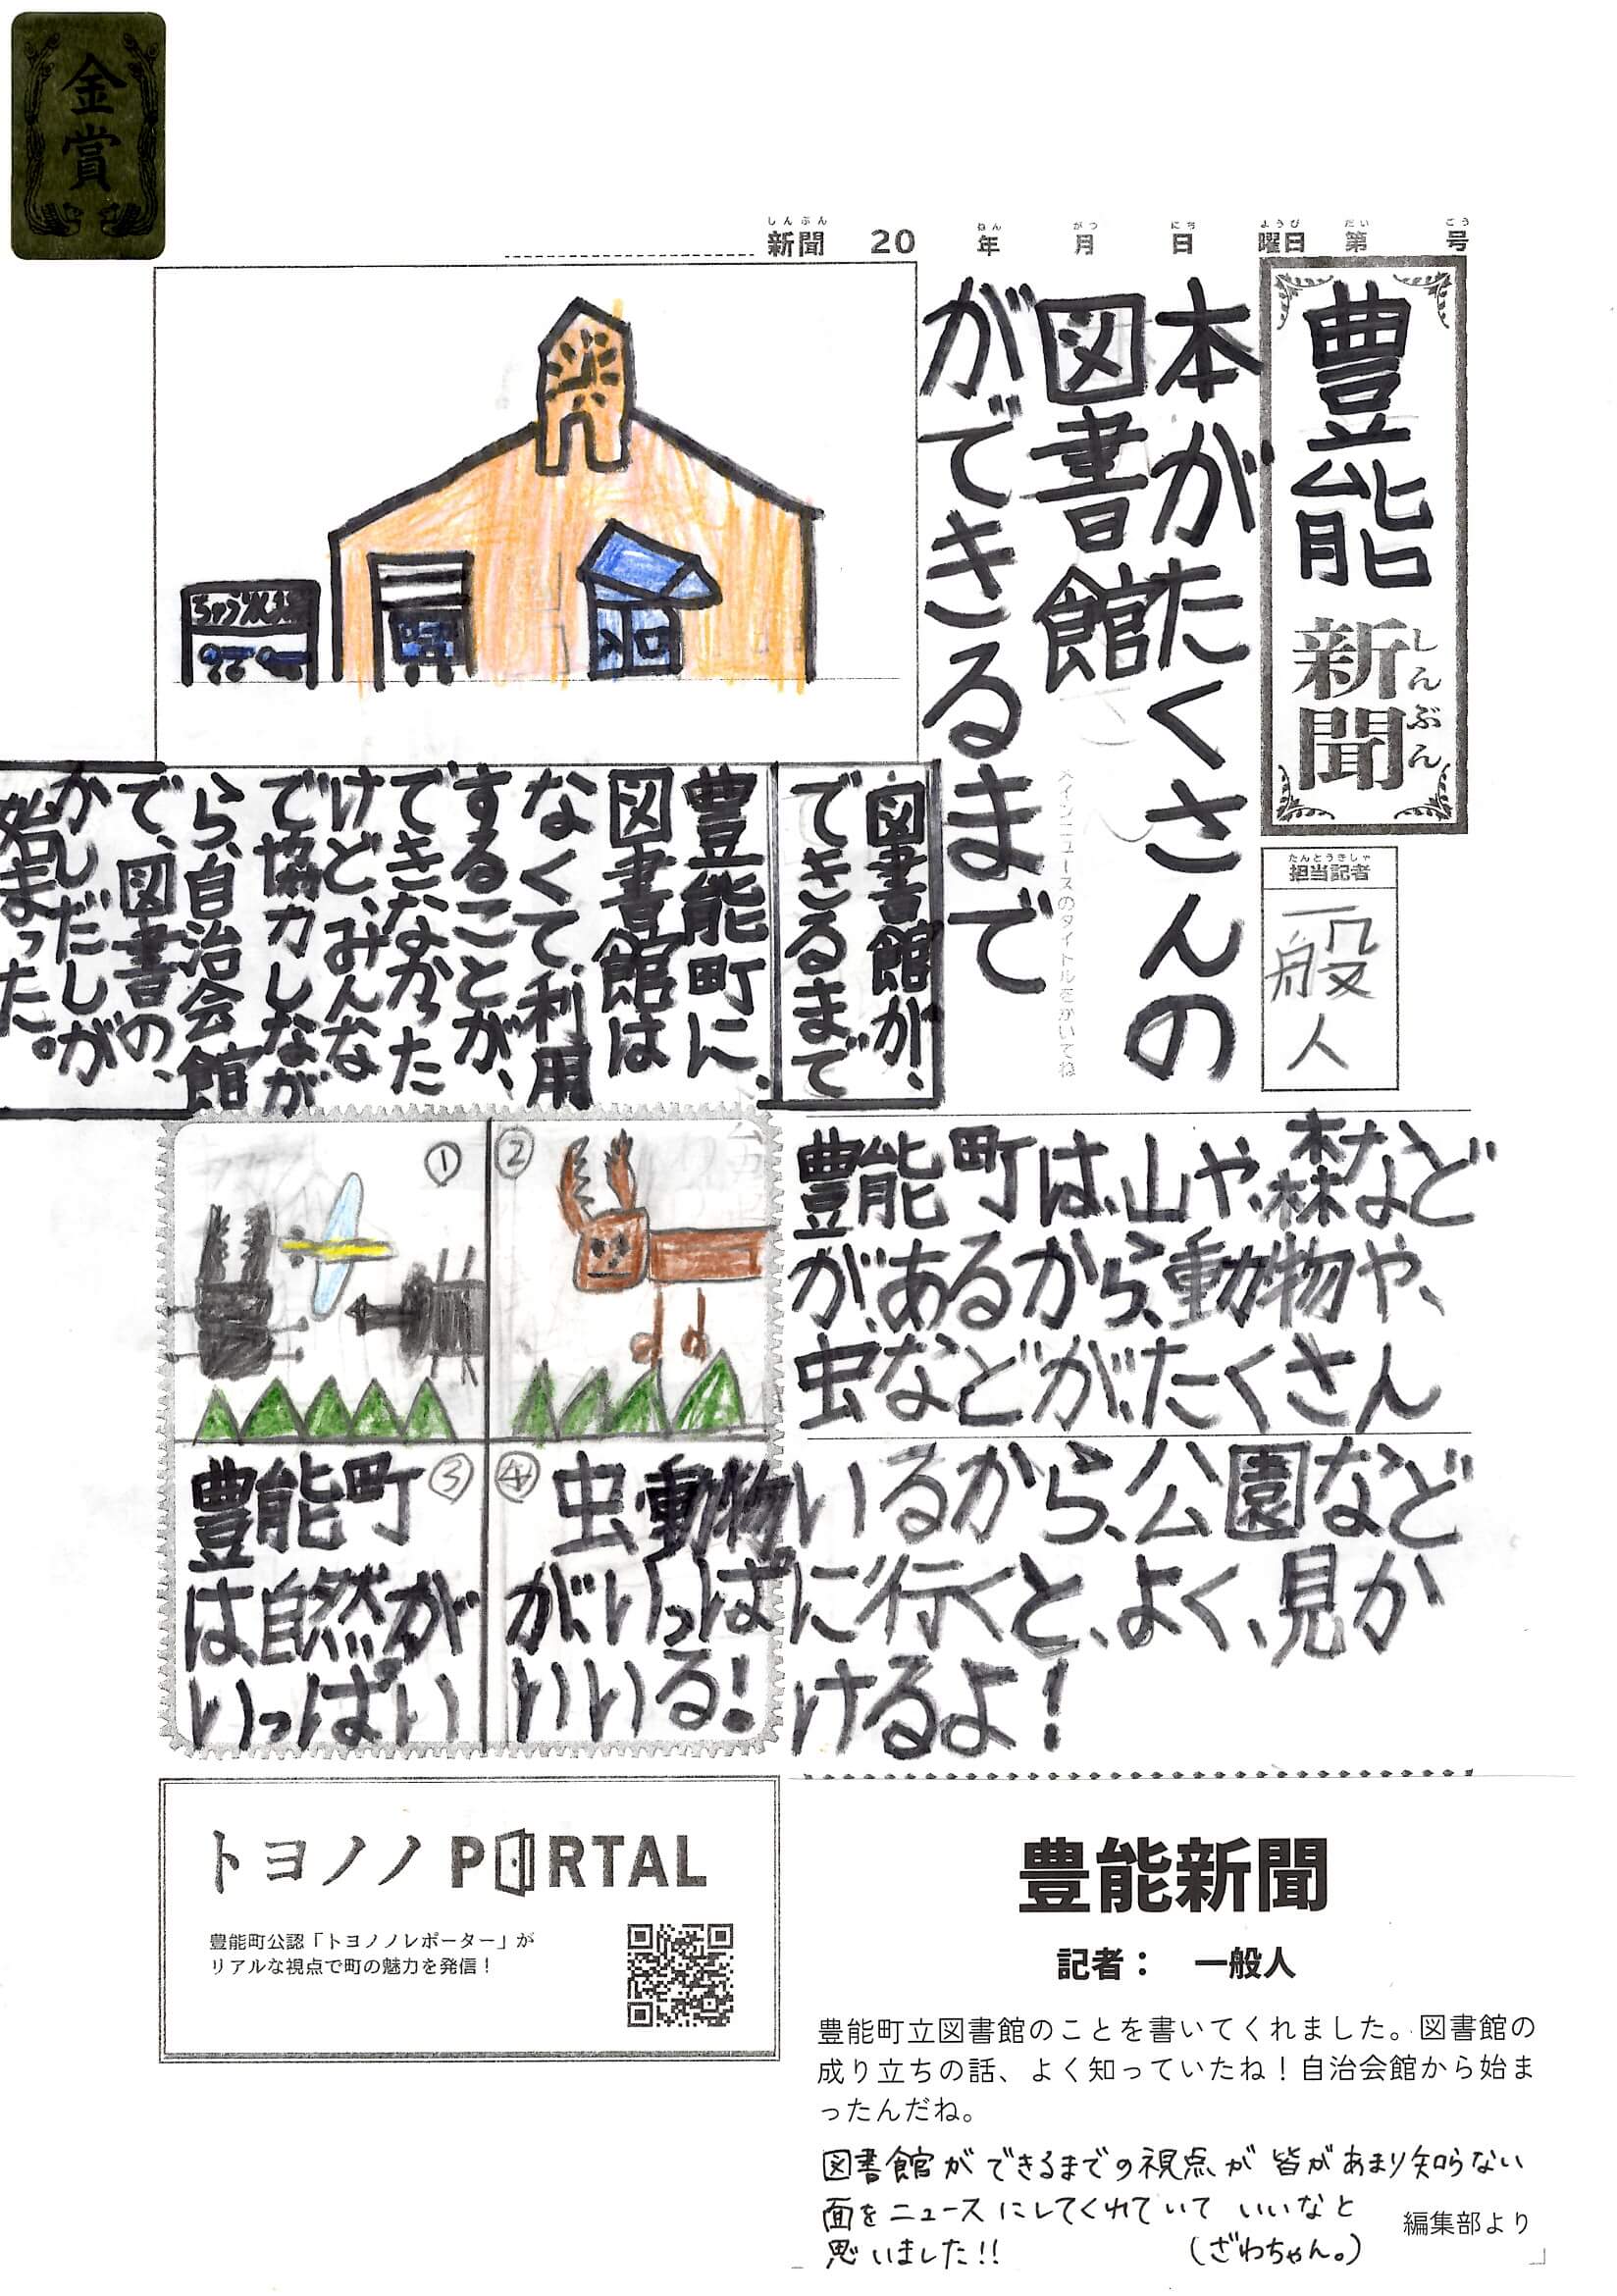 金賞
新聞 20 年 月 日 曜日 第 号
しんぶん ねん がつ にち ようび だい ごう
豊能
新聞
しんぶん
たんとうきしゃ
担当記者
一般人
本がたくさんの
図書館
ができるまで
メインニュースのタイトルをかいてね
図書館が、
できるまで
豊能町に、
図書館は
なくて、利用
することが、
できなかった
けど、みんな
で協力しなが
ら、自治会館
で、図書の、
かしだしが
始まった。
豊能町は、山や、森など
が、あるから、動物や、
虫などが、たくさん
いるから、公園など
に行くと、よく、見か
けるよ!
①
②
③
豊能町
は、自然が
いっぱい
④
虫、動物
が、いっぱ
いいる!
トヨノノPORTAL
豊能町公認「トヨノノレポーター」が
リアルな視点で町の魅力を発信!
豊能新聞
記者: 一般人
豊能町立図書館のことを書いてくれました。図書館の
成り立ちの話、よく知っていたね!自治会館から始ま
ったんだね。
図書館ができるまでの視点が皆があまり知らない
面をニュースにしてくれていていいなと
思いました!!
(ざわちゃん。)
編集部より